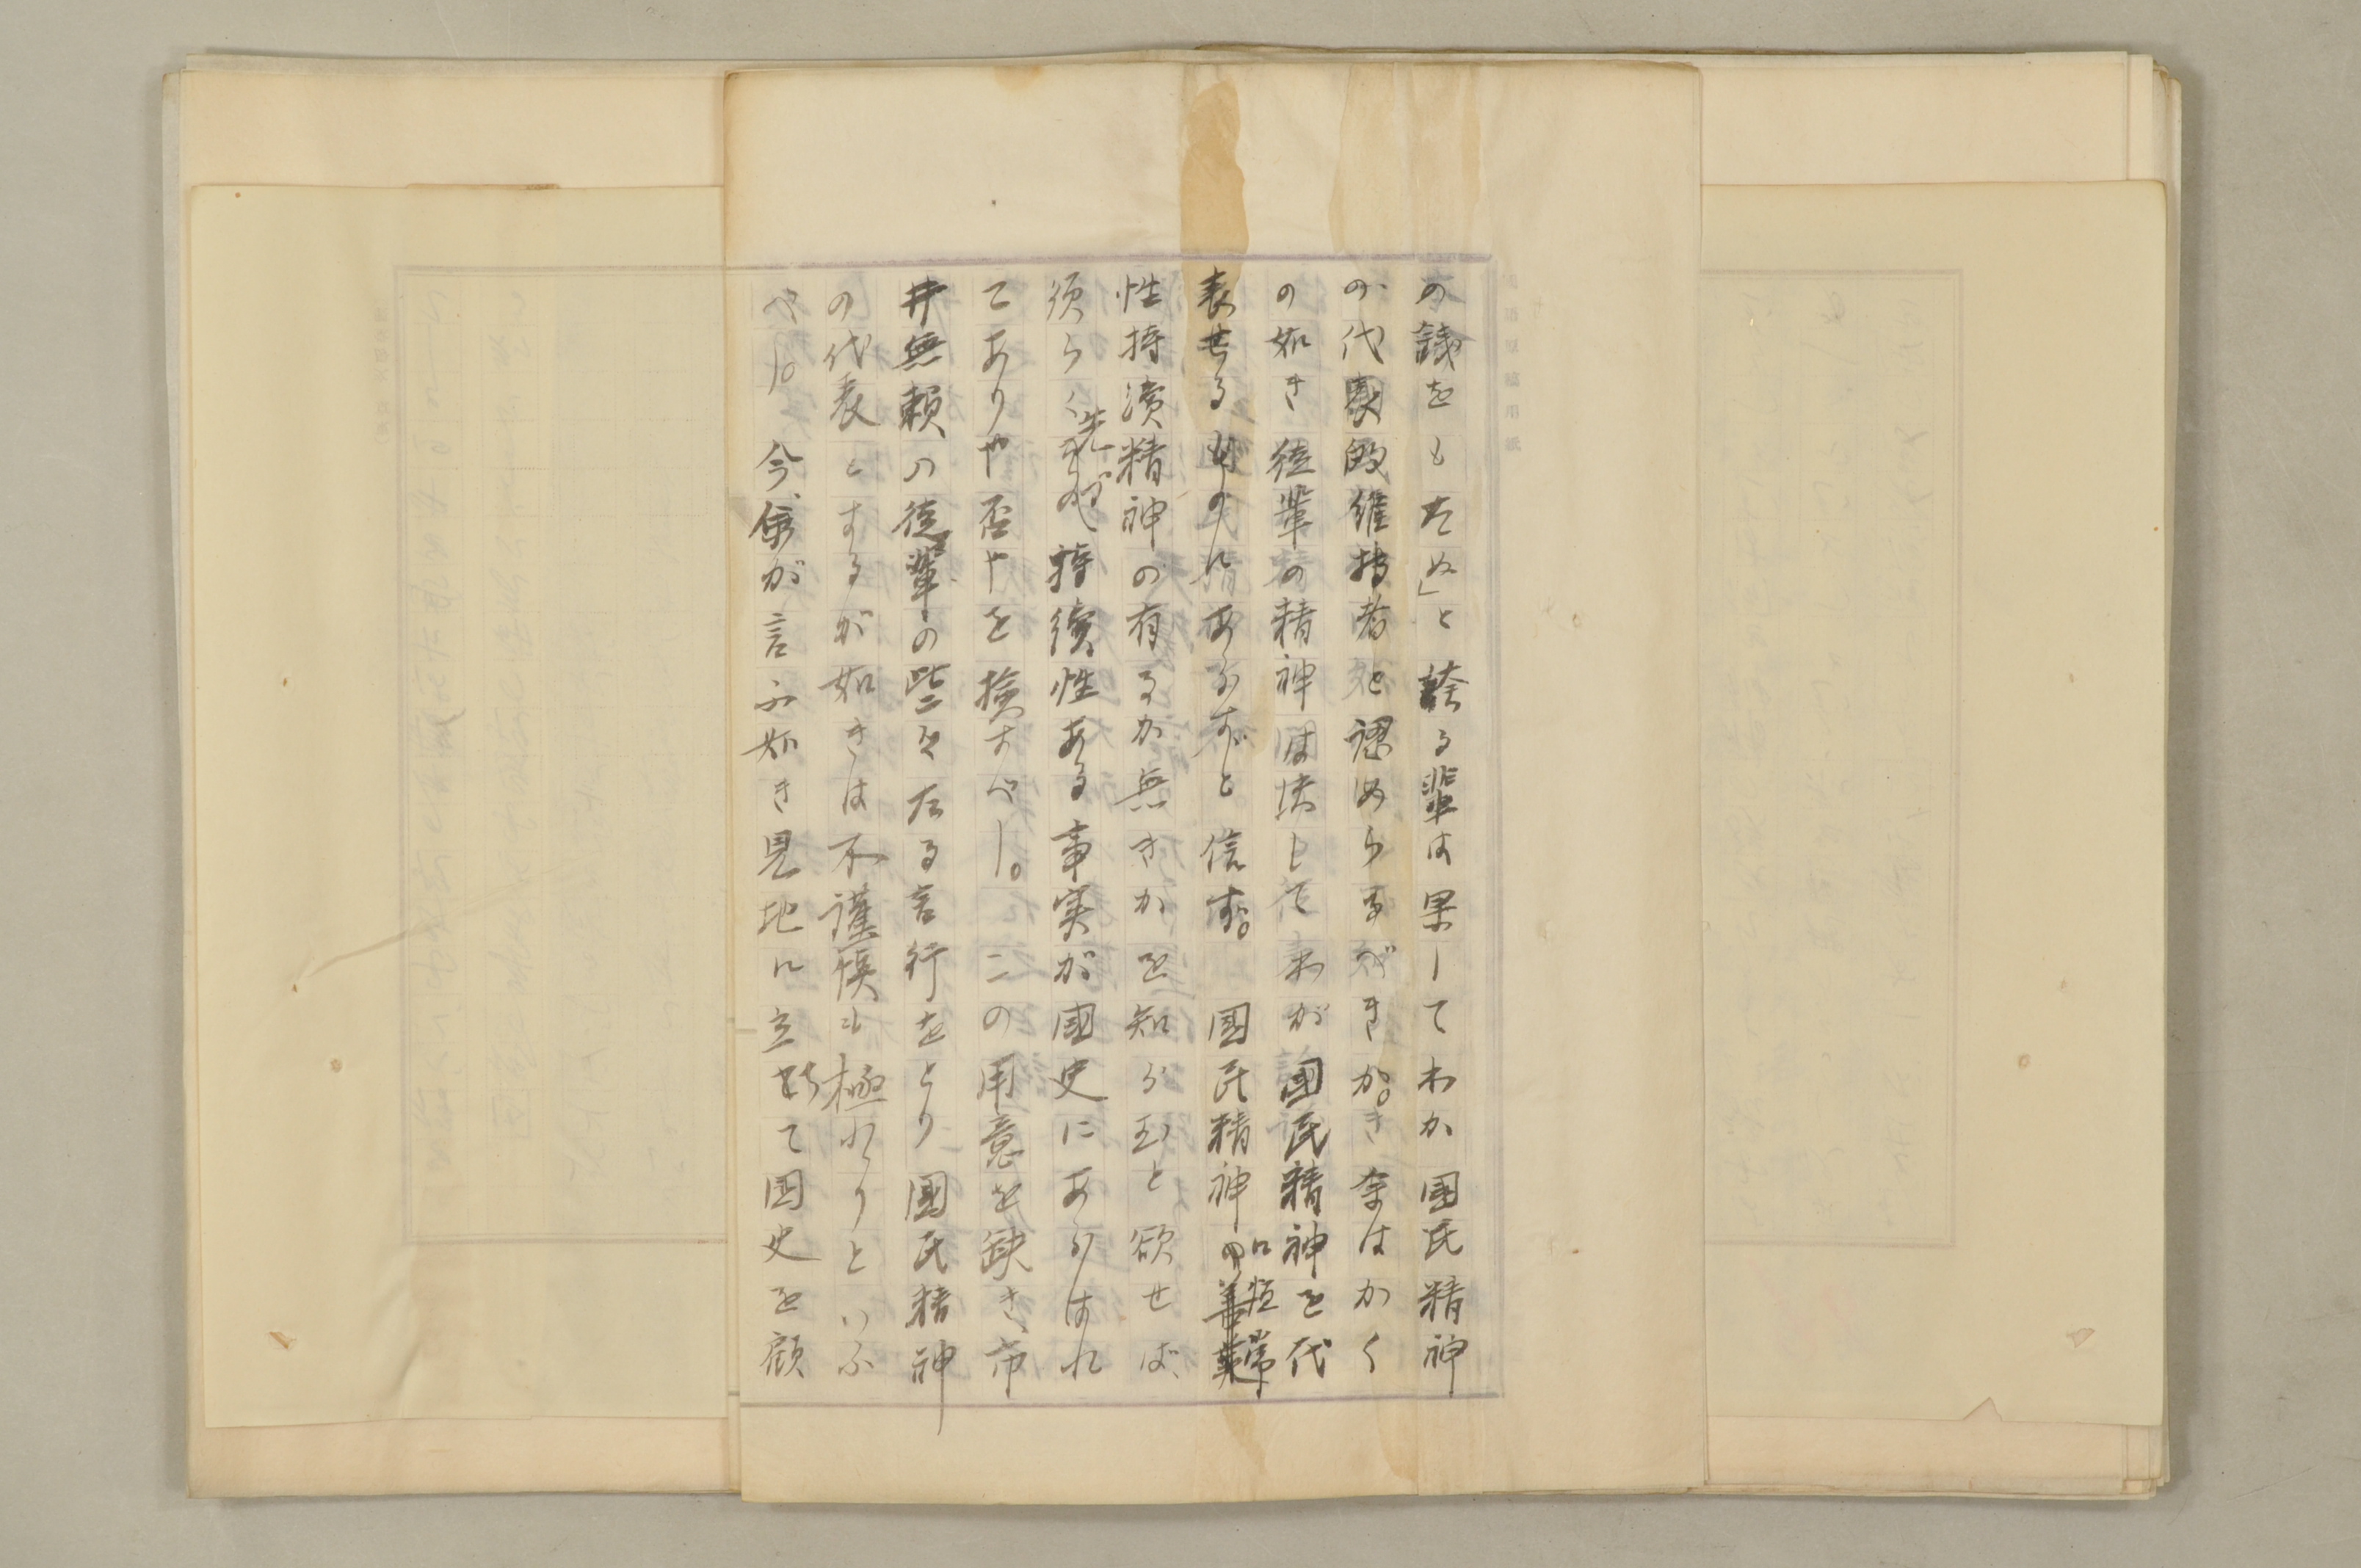 の銭をもたぬ」と誇る輩は果してわか国民精神
の代表的維持者と認めらるべきか。余はかく
の如き徒輩の精神は決してわが国民精神を代
表せるものにあらずと信ず。国民精神の恒常
性持続精神の有るか無きかを知らむと欲せば、
須らく先づ持続性ある事実が國史にあらはれ
てありや否やを撿すべし。この用意を缺き、市
井無頼の徒輩の些々たる言行をとり國民精神
の代表とするが如きは不謹慎も極れりといふ
べし。今、余が言ふ如き見地に立ちて国史を顧